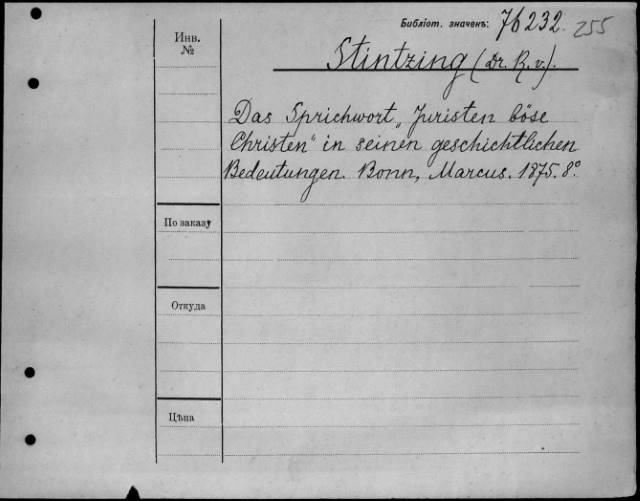 Библіот. значекъ: 76232. 255
Инв.
№
Stintzing (Dr. R. v.).
Das Sprichwort „Juristen böse
Christen" in seinen geschichtlichen
Bedeutungen. Bonn, Marcus. 1875. 8°.
По заказу
Откуда
Цѣна